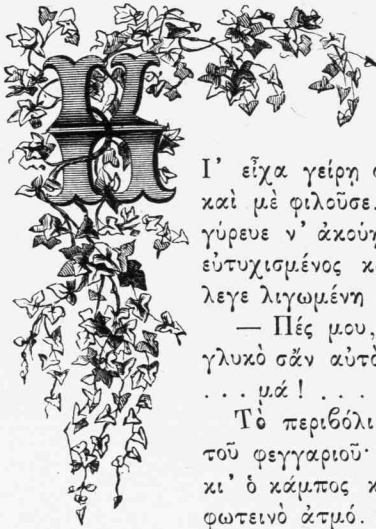 ΚΙ' εἶχα γείρη
καὶ μὲ φιλοῦσε.
γύρευε ν' ἀκούῃ
εὐτυχισμένος κ
λεγε λιγωμένη
— Πές μου,
γλυκὸ σἂν αὐτὸ
. . . μά ! . . .
Τὸ περιβόλι
τοῦ φεγγαριοῦ·
κι' ὁ κάμπος κ
φωτεινὸ ἀτμό.